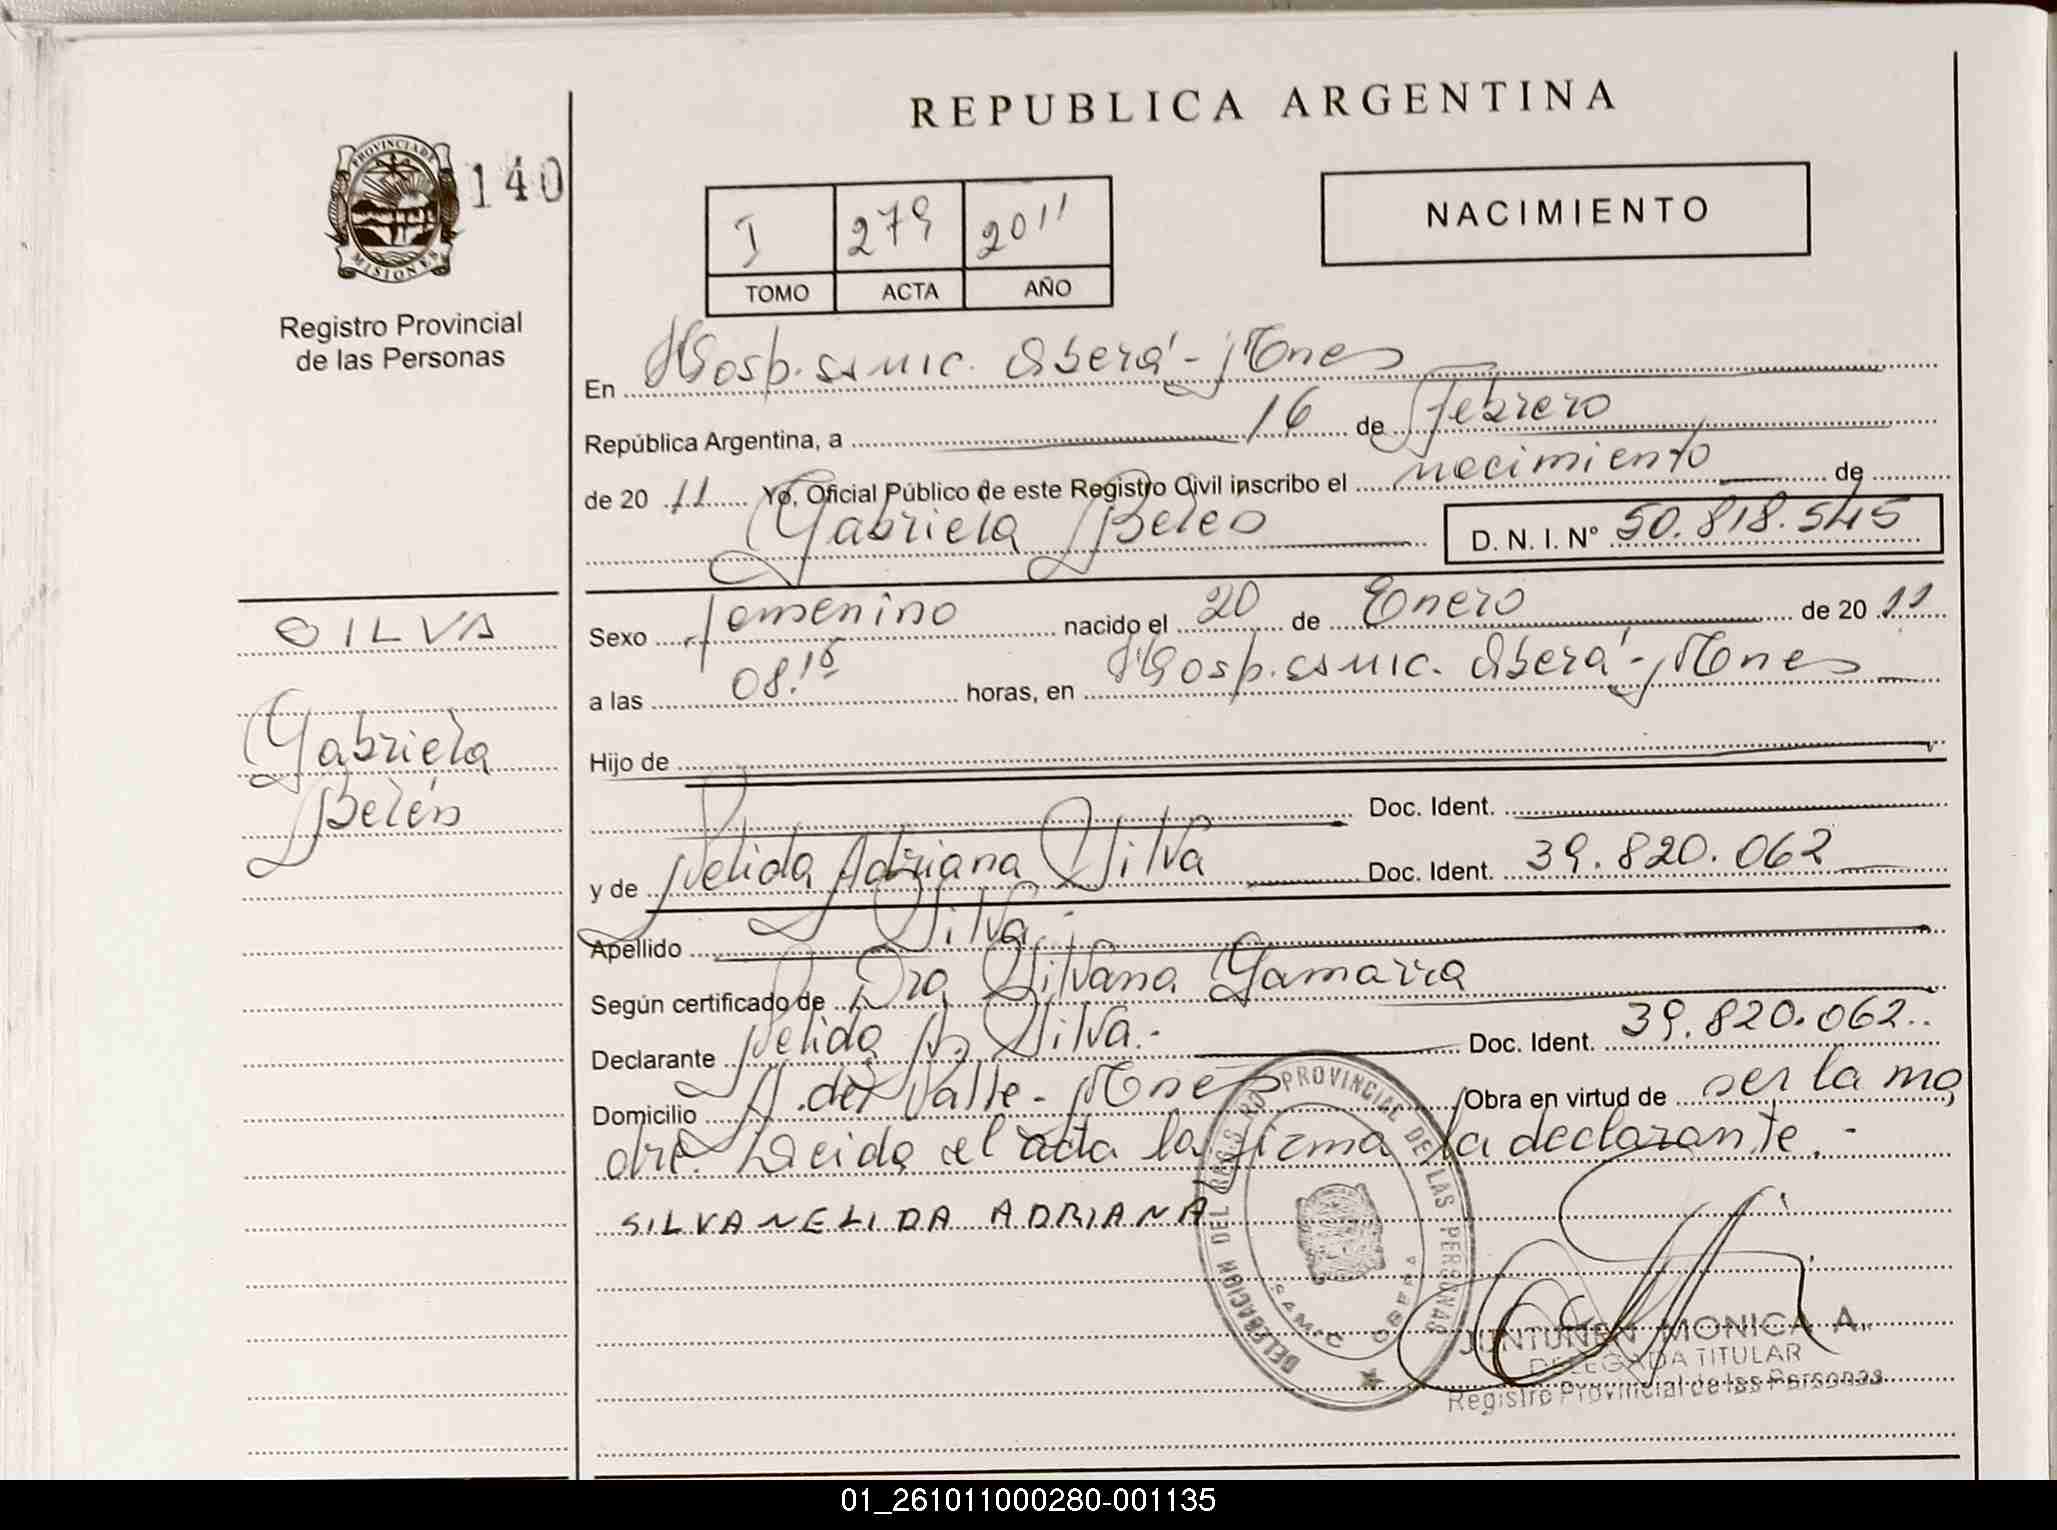 REPUBLICA ARGENTINA
PROVINCIA DE
MISIONES
140
Registro Provincial
de las Personas
I 279 2011
TOMO ACTA AÑO
NACIMIENTO
En Hosp. SAMIC. Oberá - Mnes
República Argentina, a 16 de Febrero
de 20 11 Yo, Oficial Público de este Registro Civil inscribo el nacimiento de
Gabriela Belén D. N. I. N° 50.818.545
SILVA
Gabriela
Belén
Sexo femenino nacido el 20 de Enero de 20 11
a las 08.15 horas, en Hosp. SAMIC. Oberá - Mnes
Hijo de
Doc. Ident.
y de Nelida Adriana Silva Doc. Ident. 39.820.062
Apellido Silva.-
Según certificado de Dra Silvana Gamarra
Declarante Nelida A. Silva.- Doc. Ident. 39.820.062..
Domicilio A. del Valle - Mnes Obra en virtud de ser la ma
dre. Leida el acta la firma la declarante.-
SILVA NELIDA ADRIANA
DELEGACION DEL REGISTRO PROVINCIAL DE LAS PERSONAS
SAMIC OBERA
JUNTUNEN MONICA A.
DELEGADA TITULAR
Registro Provincial de las Personas
01_261011000280-001135